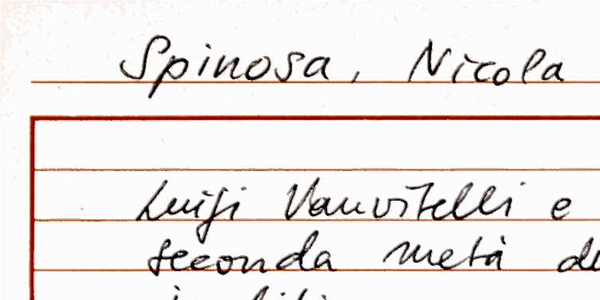 Spinosa, Nicola
Luigi Vanvitelli e
seconda metà de